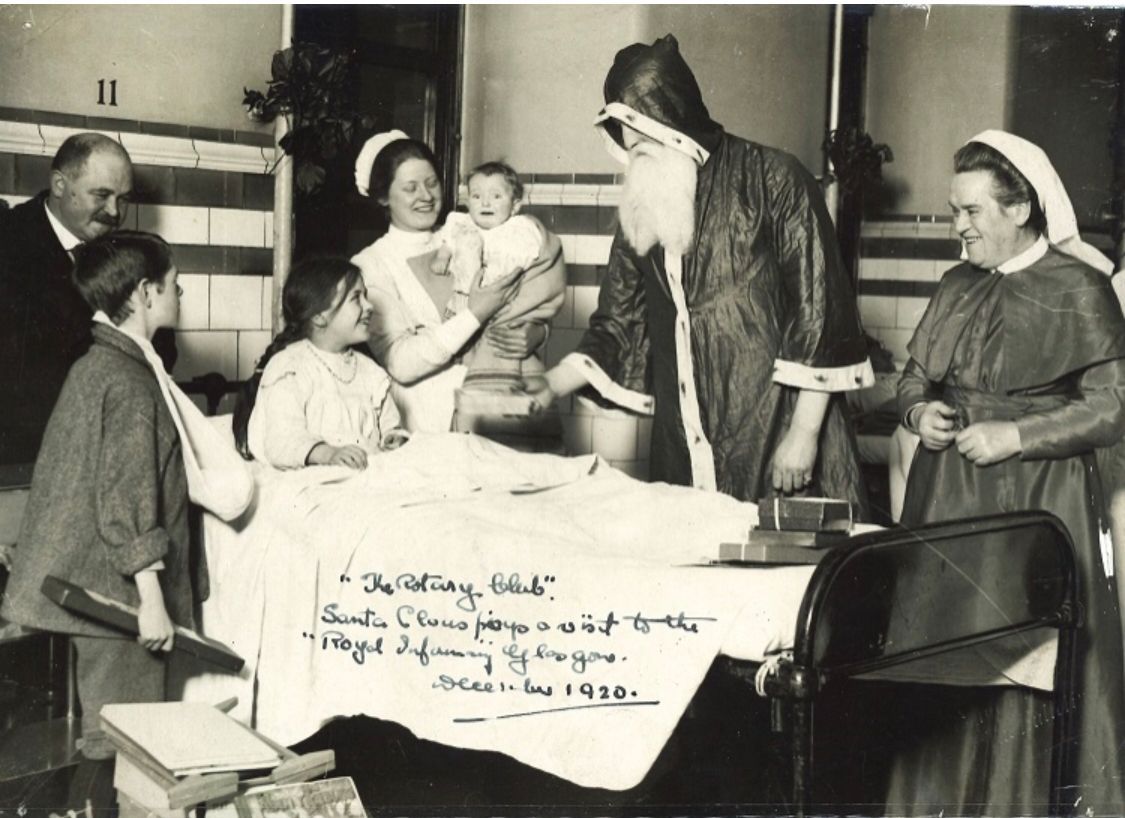 11
"The Rotary Club".
Santa Claus pays a visit to the
"Royal Infirmary Glasgow.
December 1920.